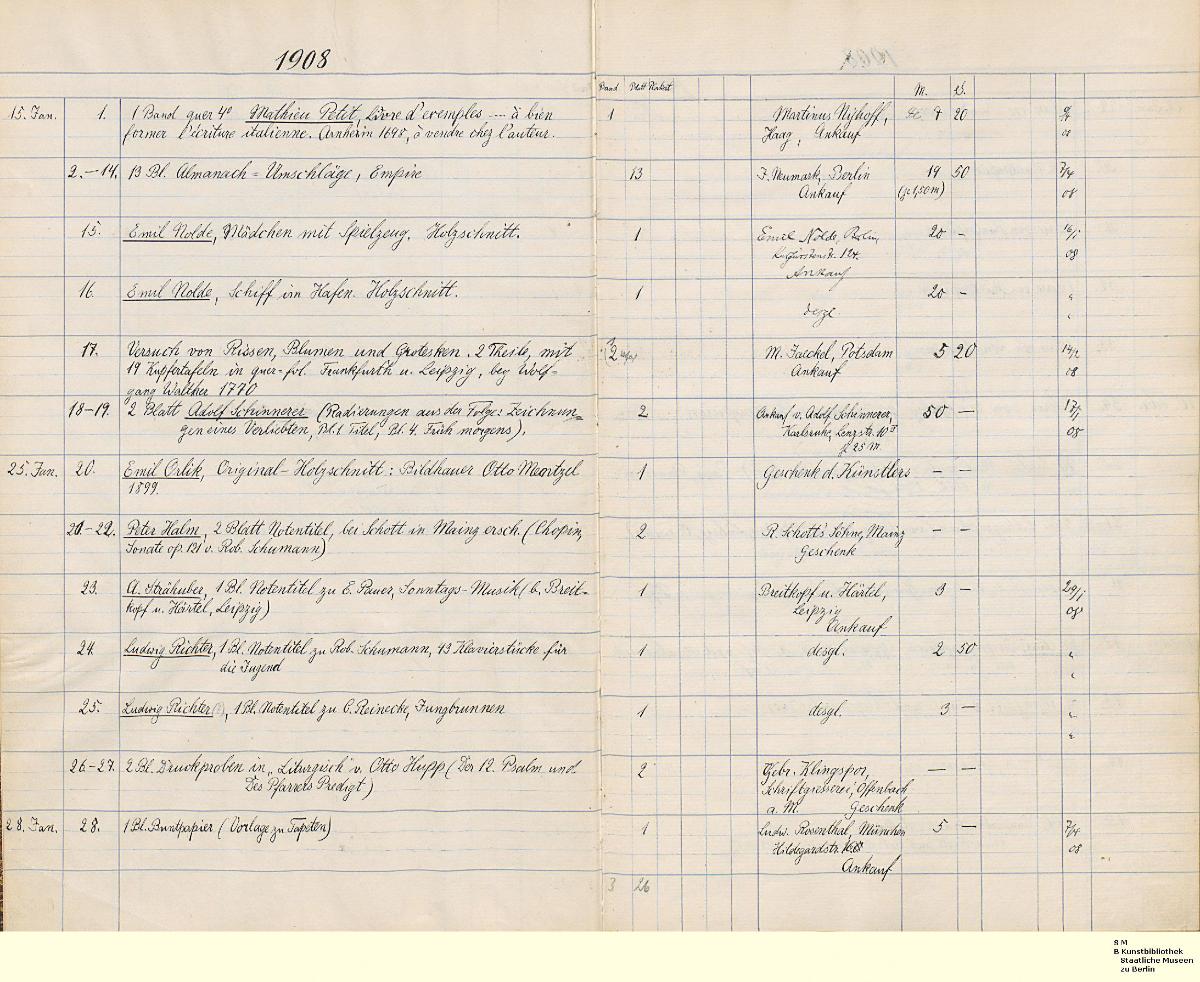 1908
Band Blatt Korbert M. Pf.
15. Jan. 1. 1 Band quer 4° Mathieu Petit, Livre d'exemples --- à bien 1 Martinus Nijhoff, 7 20
former l'écriture italienne. Arnhem 1695, à vendre chez l'auteur. Haag, Ankauf 08
2.-14. 13 Bl. Almanach=Umschläge, Empire 13 J. Neumark, Berlin 19 50 7/4
Ankauf (je 1,50 m) 08
15. Emil Nolde, Mädchen mit Spielzeug. Holzschnitt. 1 Emil Nolde, Berlin, 20 - 16/1
08
Ankauf
16. Emil Nolde, Schiff im Hafen. Holzschnitt. 1 20 - "
desgl. "
17. Versuch von Rissen, Blumen und Grotesken. 2 Theile, mit 2 M. Jaeckel, Potsdam 5 20 14/2
19 Kupfertafeln in quer-fol. Frankfurth u. Leipzig, bey Wolf- Ankauf 08
gang Walther 1770
18-19. 2 Blatt Adolf Schinnerer (Radierungen aus der Folge: Zeichnun- 2 Ankauf v. Adolf Schinnerer, 50 - 17/1
gen eines Verliebten, Bl. 1 Titel, Bl. 4. Früh morgens). Karlsruhe, Lenzstr. 10 II 08
je 25 M.
25. Jan. 20. Emil Orlik, Original-Holzschnitt: Bildhauer Otto 1 Geschenk d. Künstlers - -
1899.
21-22. Peter Halm, 2 Blatt Notentitel, bei Schott in Mainz ersch. (Chopin, 2 B. Schott's Söhne, Mainz - -
Sonate op. 121 v. Rob. Schumann) Geschenk
23. A. Strähuber, 1 Bl. Notentitel zu E. Pauer, Sonntags-Musik (b. Breit- 1 Breitkopf u. Härtel, 3 - 29/1
kopf u. Härtel, Leipzig) Leipzig 08
Ankauf
24. Ludwig Richter, 1 Bl. Notentitel zu Rob. Schumann, 43 Klavierstücke für 1 desgl. 2 50 "
die Jugend "
25. Ludwig Richter (?), 1 Bl. Notentitel zu C. Reinecke, Jungbrunnen 1 desgl. 3 - "
"
26-27. 2 Bl. Druckproben in „Liturgisch" v. Otto Hupp (Der 12. Psalm und 2 Gebr. Klingspor, - -
Des Pfarrers Predigt) Schriftgiesserei, Offenbach
a. M. Geschenk
28. Jan. 28. 1 Bl. Buntpapier (Vorlage zu Tapeten) 1 Ludw. Rosenthal, München 5 - 7/4
Hildegardstr. 08
Ankauf
3 26
S M
B Kunstbibliothek
Staatliche Museen
zu Berlin